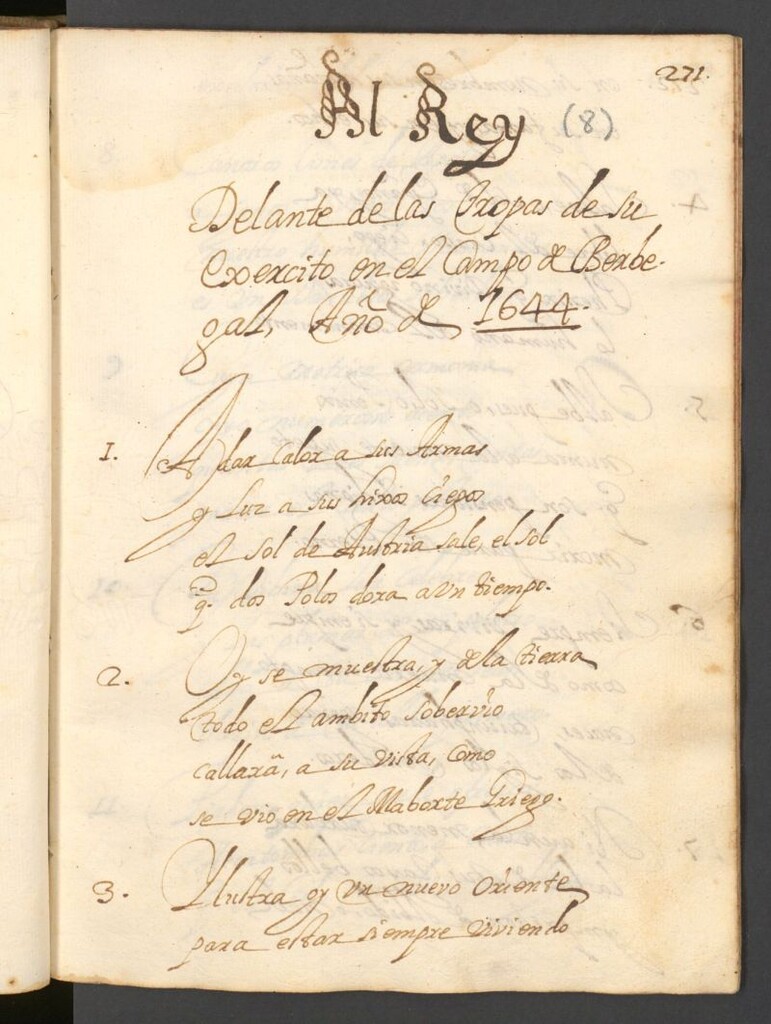 271.
Al Rey (8)
Delante de las Tropas de su
Exercito en el Campo de Berbe-
gal, Año de 1644.
1. A dar calor a sus Armas
y luz a sus hixos ciegos
el sol de Austria sale, el sol
q. dos Polos dora a un tiempo.
2. Oy se muestra, y de la tierra
todo el ambito sobervio
callarâ, a su vista, como
se vio en el Maborte Griego.
3. Ylustra oy un nuevo Oriente
para estar siempre viviendo